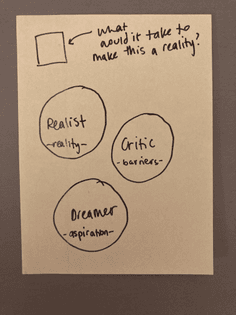 what
would it take to
make this a reality?
Realist
-reality-
Critic
-barriers-
Dreamer
-aspiration-